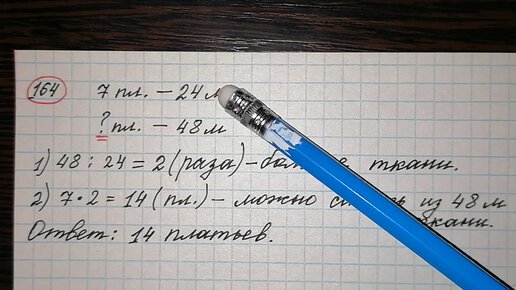 164 7 пл. – 24 м
? пл. – 48 м
1) 48 : 24 = 2 (раза) – ткани.
2) 7 · 2 = 14 (пл.) – можно из 48 м
ткани.
Ответ: 14 платьев.